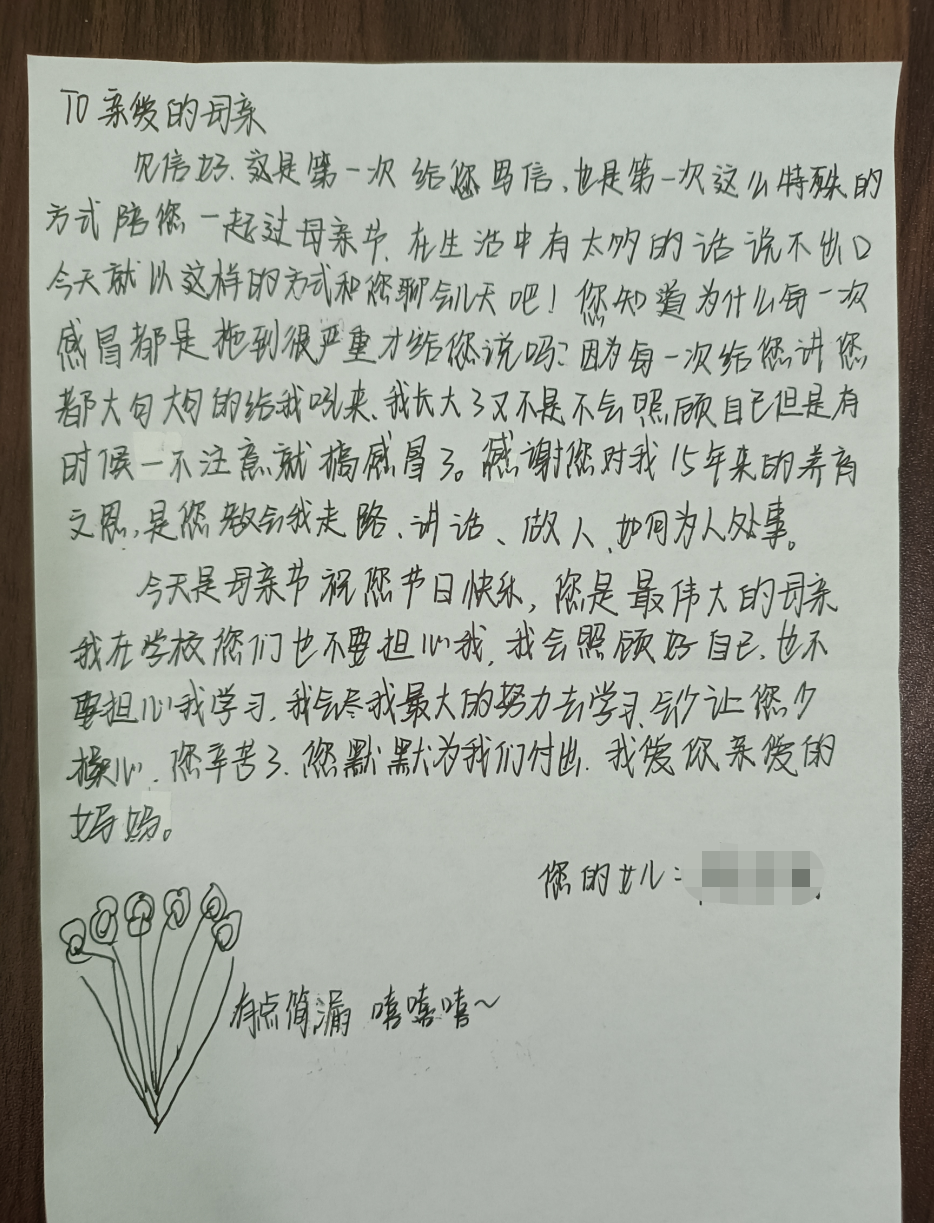 TO 亲爱的母亲
见信好.这是第一次给您写信、也是第一次这么特殊的
方式陪您一起过母亲节.在生活中有太多的话说不出口
今天就以这样的方式和您聊会儿天吧！您知道为什么每一次
感冒都是拖到很严重才给您说吗?因为每一次给您讲您
都大句大句的给我吼来、我长大了又不是不会照顾自己但是有
时候一不注意就搞感冒了。感谢您对我15年来的养育
之恩,是您教会我走路、讲话、做人、如何为人处事。
今天是母亲节祝您节日快乐,您是最伟大的母亲
我在学校您们也不要担心我,我会照顾好自己、也不
要担心我学习、我会尽我最大的努力去学习、会让您少
操心、您辛苦了.您默默为我们付出.我爱你亲爱的
妈妈。
您的女儿:
有点简漏 嘻嘻嘻~